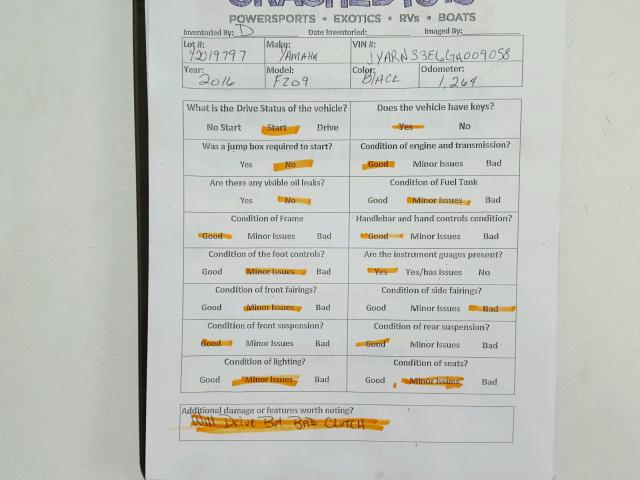 POWERSPORTS • EXOTICS • RVs • BOATS
Inventoried By: D Date Inventoried: Imaged By:
Lot #: Make: VIN #:
42019797 YAMAHA JYARN33E6GA009058
Year: Model: Color: Odometer:
2016 FZ09 BlACK 1,264
What is the Drive Status of the vehicle? Does the vehicle have keys?
No Start Start Drive Yes No
Was a jump box required to start? Condition of engine and transmission?
Yes No Good Minor Issues Bad
Are there any visible oil leaks? Condition of Fuel Tank
Yes No Good Minor Issues Bad
Condition of Frame Handlebar and hand controls condition?
Good Minor Issues Bad Good Minor Issues Bad
Condition of the foot controls? Are the instrument guages present?
Good Minor Issues Bad Yes Yes/has issues No
Condition of front fairings? Condition of side fairings?
Good Minor Issues Bad Good Minor Issues Bad
Condition of front suspension? Condition of rear suspension?
Good Minor Issues Bad Good Minor Issues Bad
Condition of lighting? Condition of seats?
Good Minor Issues Bad Good Minor Issues Bad
Additional damage or features worth noting?
Will Drive But BAD CLUTCH